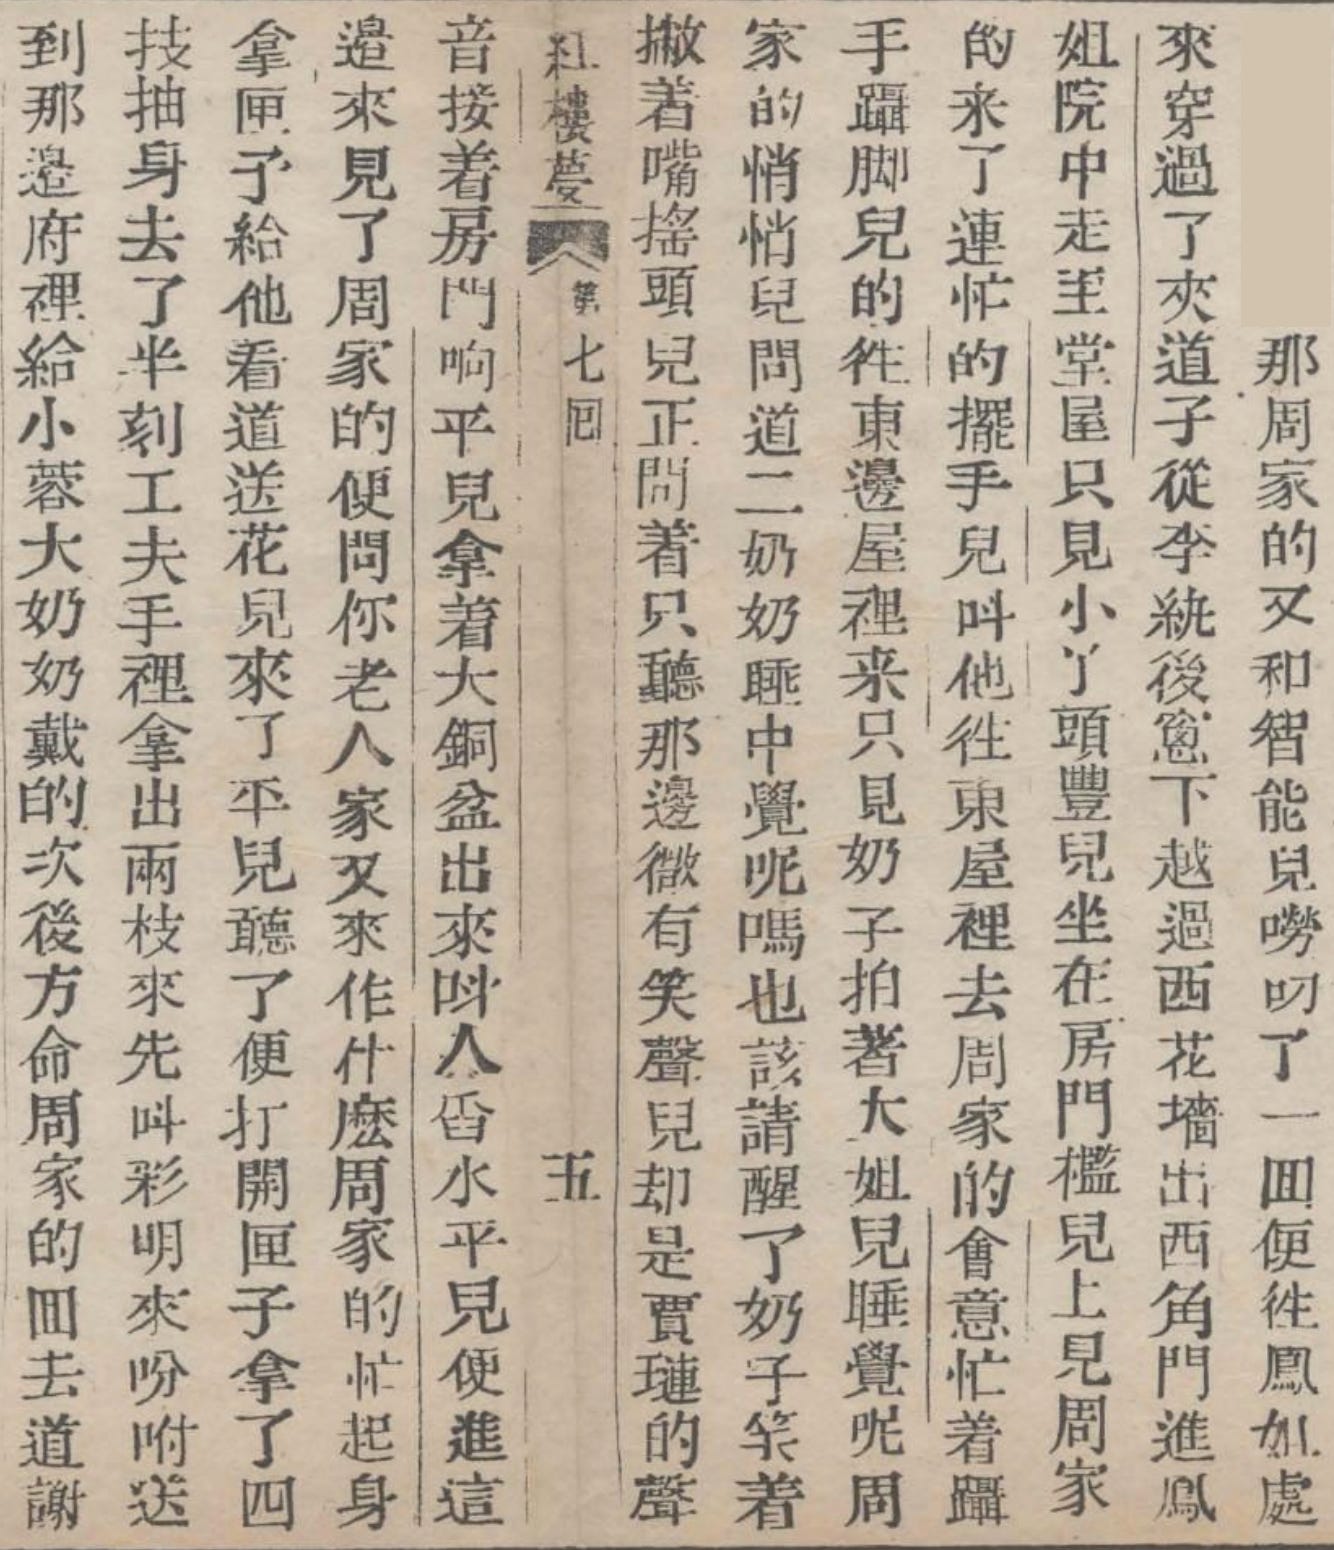 那周家的又和智能兒嘮叨了一回便徃鳳姐處
來穿過了夾道子從李紈後窻下越過西花墻出西角門進鳳
姐院中走至堂屋只見小丫頭豐兒坐在房門檻兒上見周家
的来了連忙的擺手兒叫他徃東屋裡去周家的會意忙着躡
手躡脚兒的徃東邊屋裡来只見奶子拍著大姐兒睡覺呢周
家的悄悄兒問道二奶奶睡中覺呢嗎也該請醒了奶子笑着
撇着嘴摇頭兒正問着只聽那邊微有笑聲兒却是賈璉的聲
紅樓夢 第七回 五
音接着房門响平兒拿着大銅盆出來叫人舀水平兒便進這
邉來見了周家的便問你老人家又來作什麽周家的忙起身
拿匣子給他看道送花兒來了平兒聽了便打開匣子拿了四
技抽身去了半刻工夫手裡拿出兩枝來先叫彩明來吩咐送
到那邉府裡給小蓉大奶奶戴的次後方命周家的回去道謝